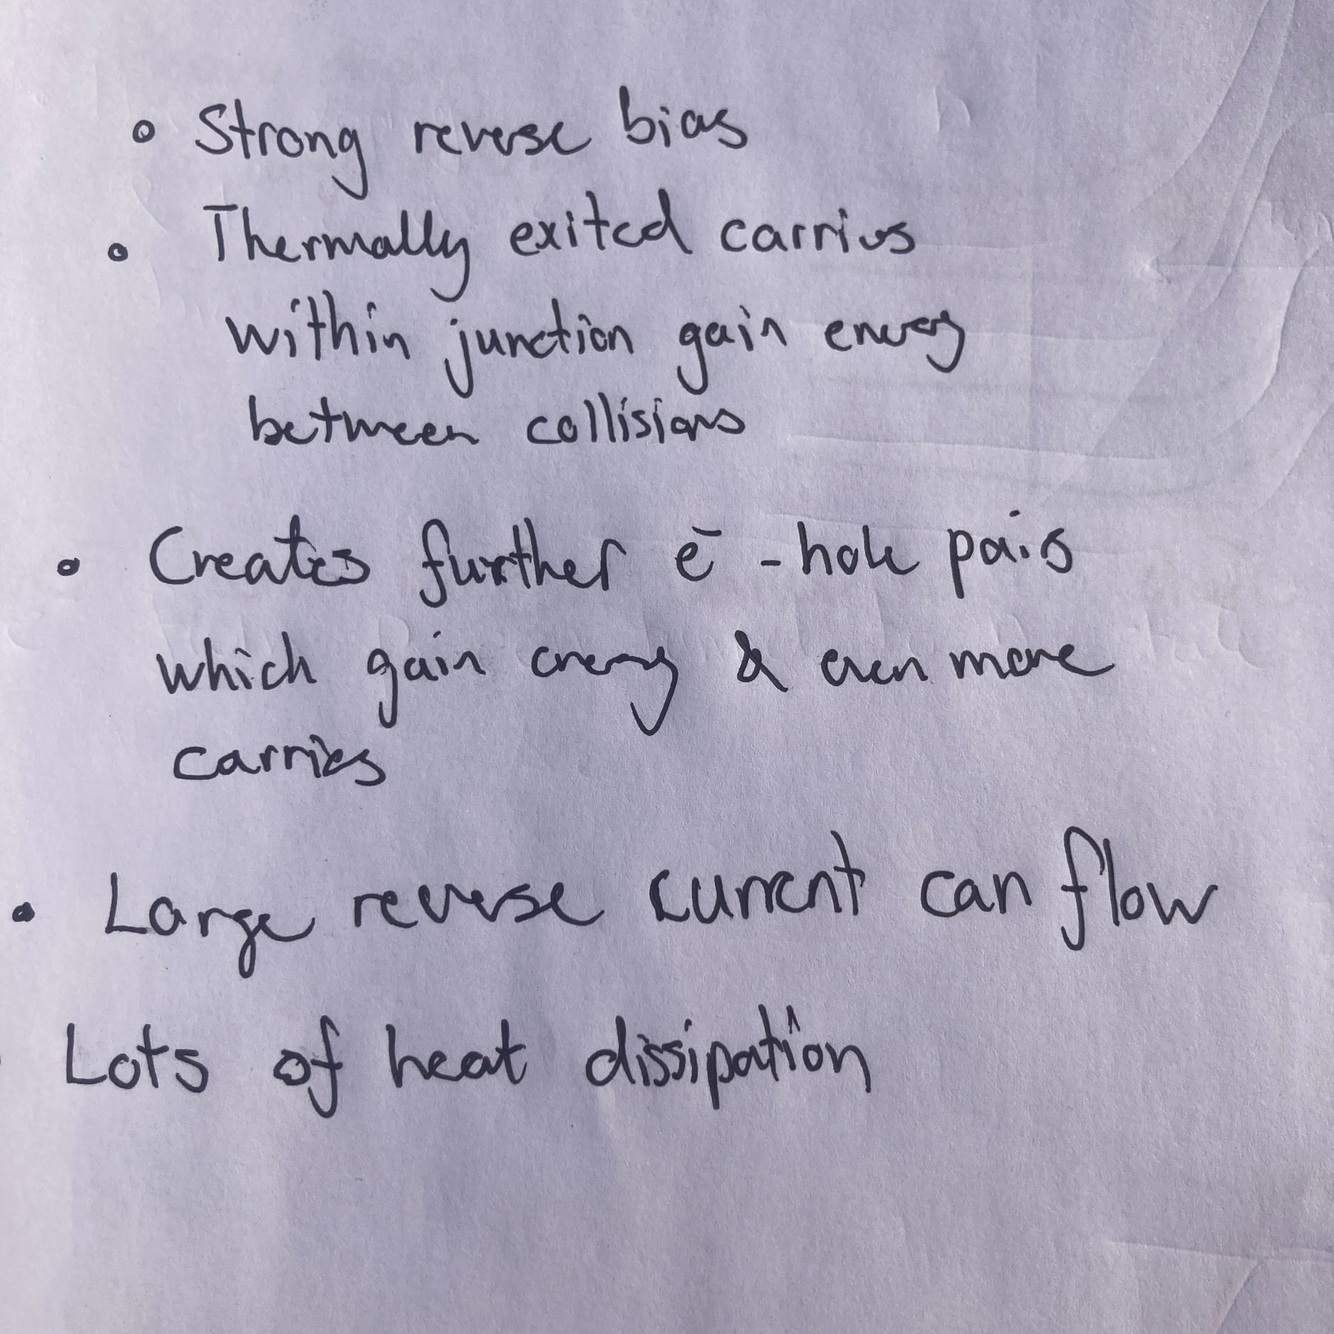 • Strong reverse bias
• Thermally exited carriers
within junction gain energy
between collisions
• Creates further e⁻ - hole pairs
which gain energy & even more
carries
• Large reverse current can flow
Lots of heat dissipation